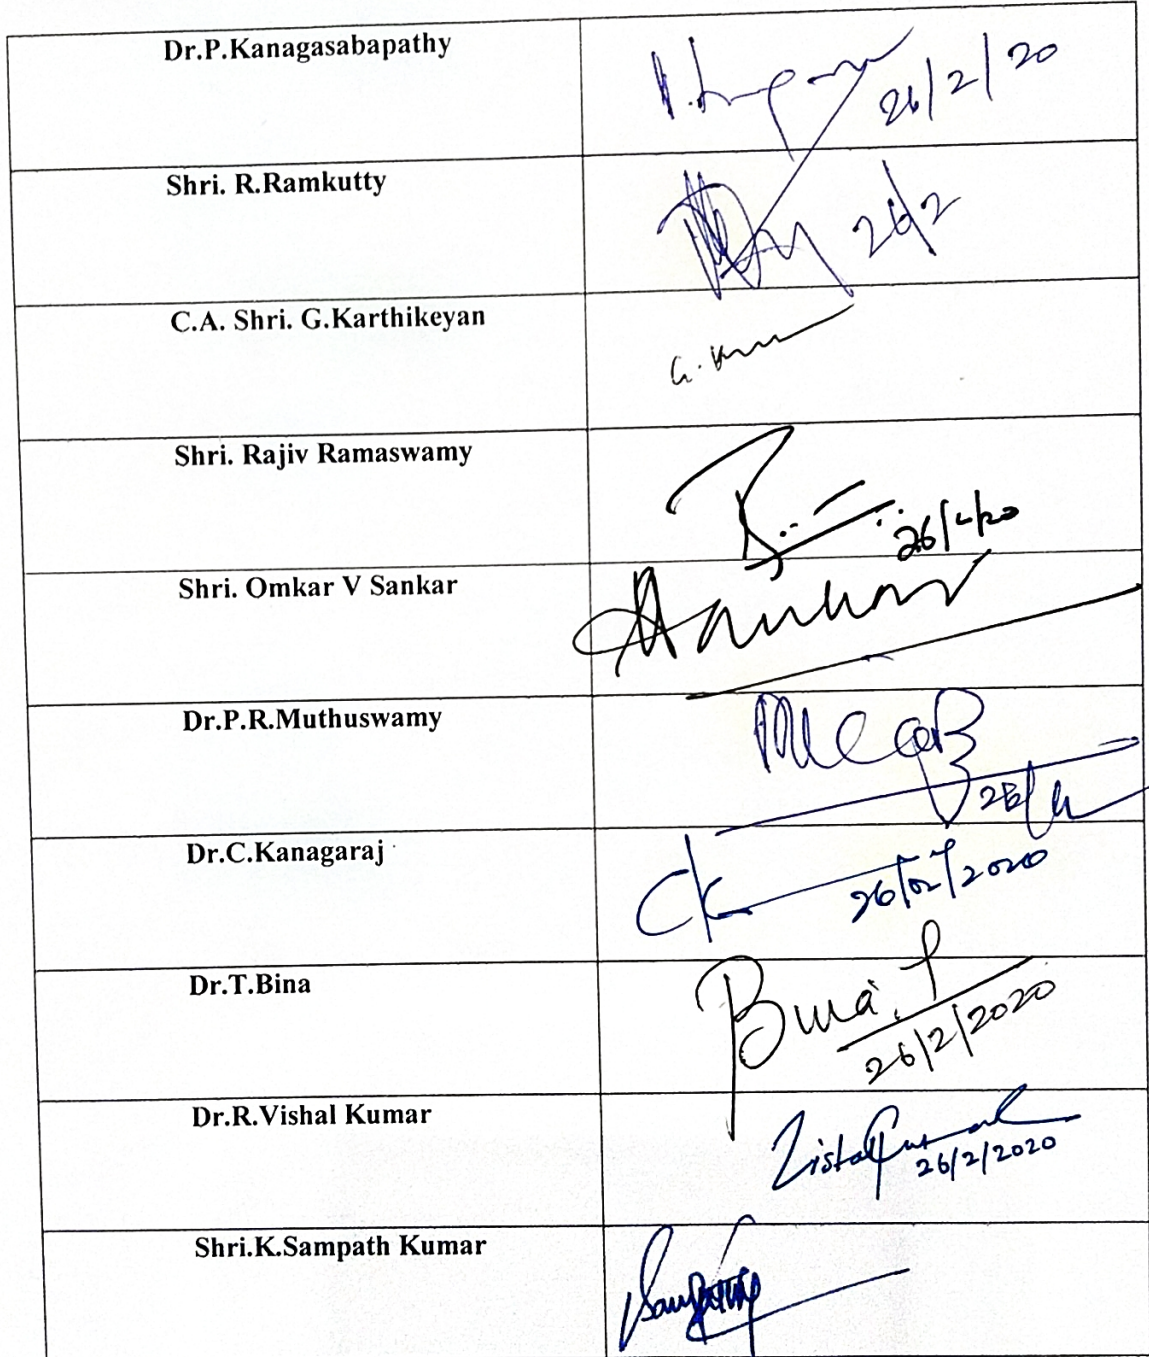 Dr.P.Kanagasabapathy
26/2/20
Shri. R.Ramkutty
26/2
C.A. Shri. G.Karthikeyan
G.
Shri. Rajiv Ramaswamy
26/2/20
Shri. Omkar V Sankar
Dr.P.R.Muthuswamy
Dr.C.Kanagaraj
CK 26/02/2020
Dr.T.Bina
Bina.T
26/2/2020
Dr.R.Vishal Kumar
26/2/2020
Shri.K.Sampath Kumar